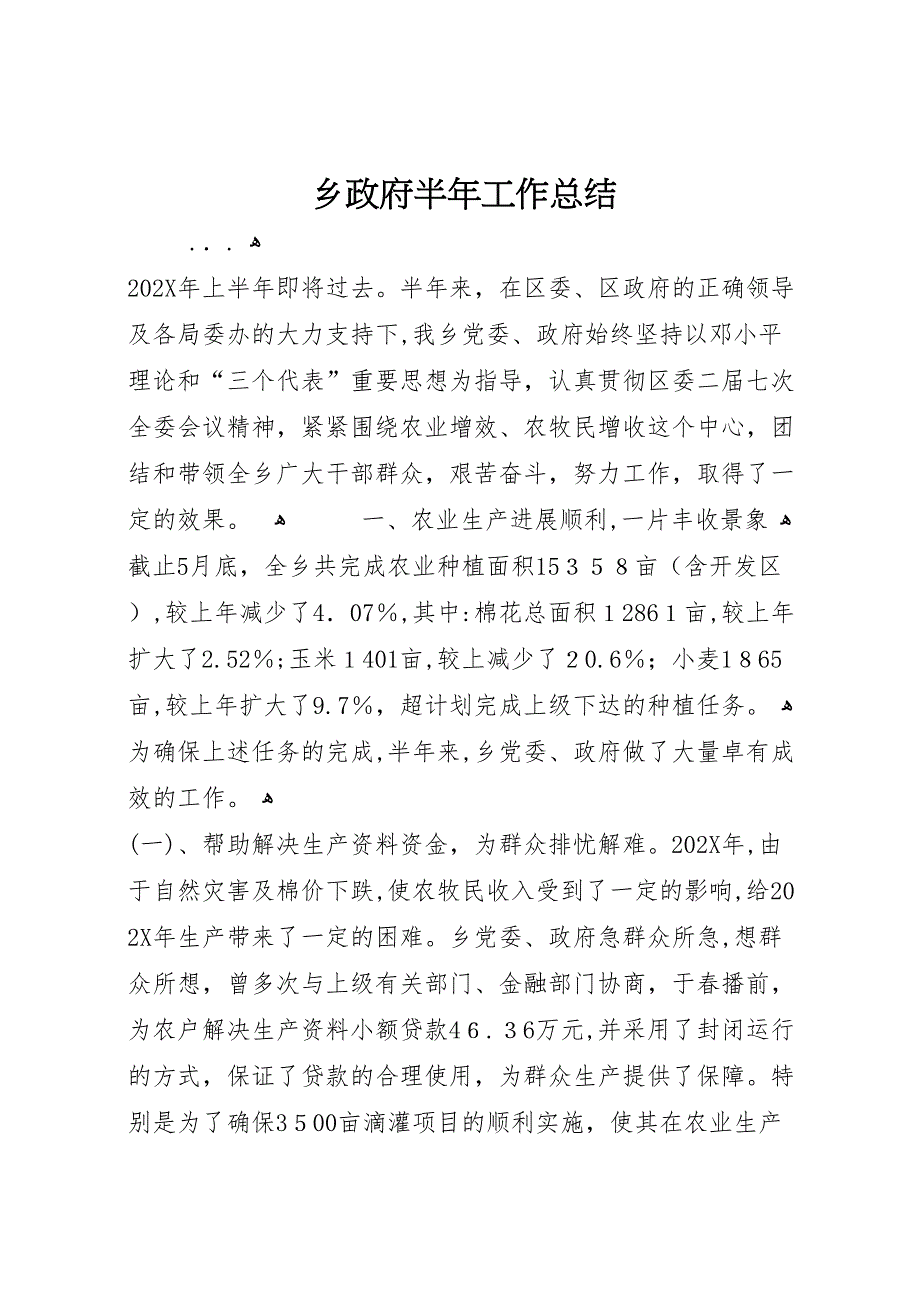 乡政府半年工作总结
...ﻫ
202X年上半年即将过去。半年来，在区委、区政府的正确领导
及各局委办的大力支持下,我乡党委、政府始终坚持以邓小平
理论和“三个代表”重要思想为指导，认真贯彻区委二届七次
全委会议精神，紧紧围绕农业增效、农牧民增收这个中心，团
结和带领全乡广大干部群众，艰苦奋斗，努力工作，取得了一
定的效果。 ﻫ 一、农业生产进展顺利,一片丰收景象ﻫ
截止5月底，全乡共完成农业种植面积15３５８亩（含开发区
）,较上年减少了4．07％,其中:棉花总面积１2861亩,较上年
扩大了2.52％;玉米１401亩,较上减少了２0.6％；小麦1８65
亩,较上年扩大了9.7％，超计划完成上级下达的种植任务。ﻫ
为确保上述任务的完成,半年来,乡党委、政府做了大量卓有成
效的工作。ﻫ
(一)、帮助解决生产资料资金，为群众排忧解难。202X年,由
于自然灾害及棉价下跌,使农牧民收入受到了一定的影响,给20
2X年生产带来了一定的困难。乡党委、政府急群众所急,想群
众所想，曾多次与上级有关部门、金融部门协商，于春播前，
为农户解决生产资料小额贷款4６.３6万元,并采用了封闭运行
的方式，保证了贷款的合理使用，为群众生产提供了保障。特
别是为了确保3５00亩滴灌项目的顺利实施，使其在农业生产